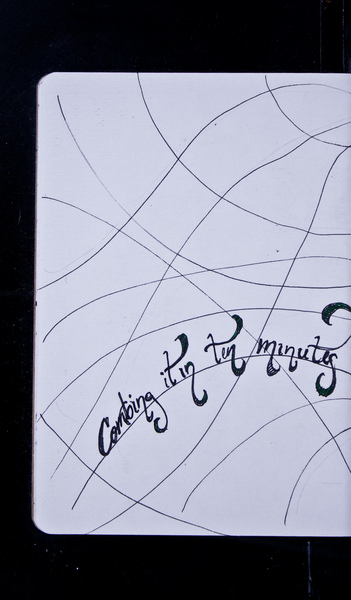 Combing it in tin minutes